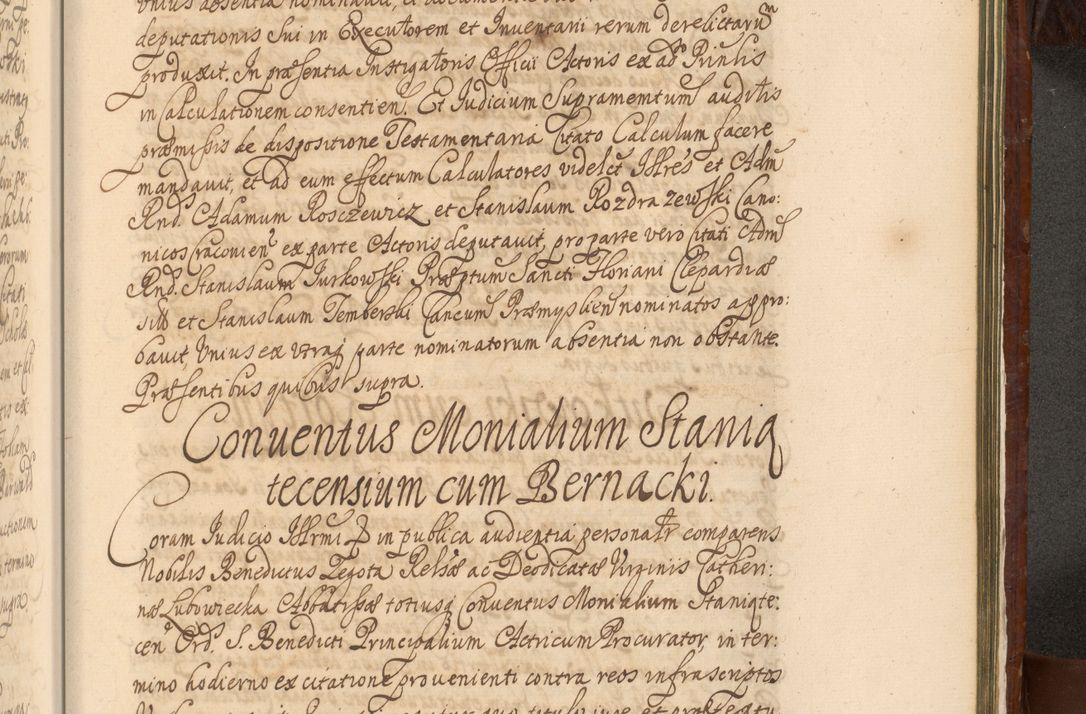 deputationis sui in Executorem et Inventarii rerum derelictarũ
produxit. In præsentia Instigatoris Officii Actoris ex ad
in Calculationem consentien. Et Iudicium Supramentum auditis
præmissis de dispositione Testamentaria Citato Calculum facere
mandauit, et ad eum effectum Calculatores videlet Illres et Adm
Rnd. Adamum Rosczewicz et Stanislaum Rozdrazewski Cano:
nicos Cracouien ex parte Actoris deputauit, pro parte vero Citati Adm
Rnd. Stanislaum Jurkowski Præptum Sancti Floriani Clepardiæ
sitt et Stanislaum Temberski Cancum Præmyslien nominatos appro:
bauit, Vnius ex vtraq parte nominatorum absentia non obstante.
Præsentibus quibus supra.
Conuentus Monialium Staniq
tecensium cum Bernacki.
Coram Iudicio Illrmi D in publica audientia personalr comparens
Nobilis Benedictus Zegota Relsæ ac Deodicatæ Virginis Catheri:
næ Lubowiecka Abbatissæ totiusq Conuentus Monialium Staniqte:
cen Ord. S. Benedicti Principalium Actricum Procurator, in ter:
mino hodierno ex citatione prouenienti contra reos infrascriptos